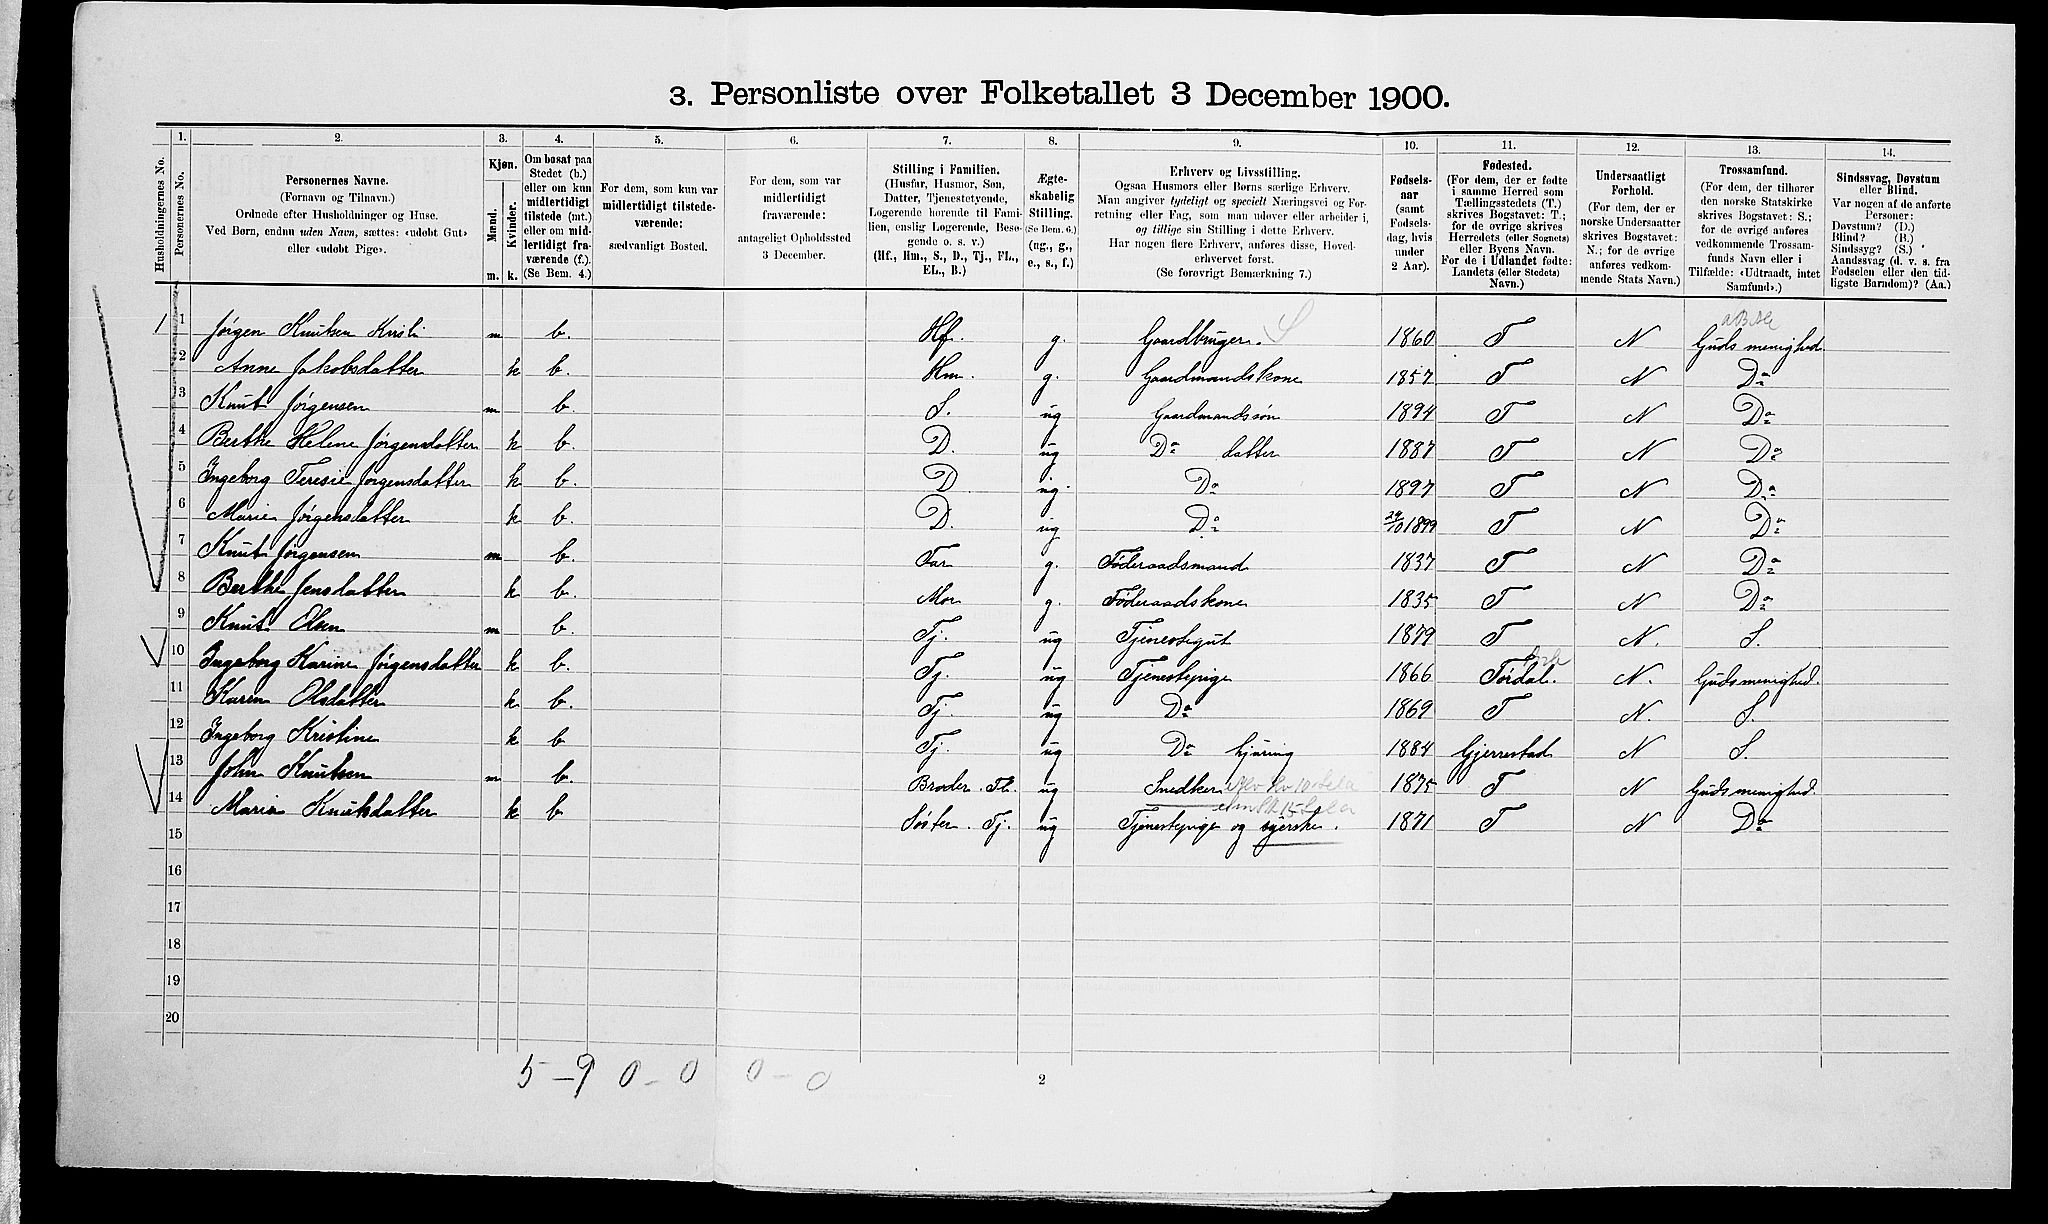 3. Personliste over Folketallet 3 December 1900.
1. 2. 3. 4. 5. 6. 7. 8. 9. 10. 11. 12. 13. 14.
Husholdningernes No.
Personernes No.
Personernes Navne.
(Fornavn og Tilnavn.)
Ordnede efter Husholdninger og Huse.
Ved Børn, endnu uden Navn, sættes: «udøbt Gut»
eller «udøbt Pige».
Kjøn.
Mænd.
Kvinder.
m. k.
Om bosat paa
Stedet (b.)
eller om kun
midlertidigt
tilstede (mt.)
eller om mid-
lertidigt fra-
værende (f.).
(Se Bem. 4.)
For dem, som kun var
midlertidigt tilstede-
værende:
sædvanligt Bosted.
For dem, som var
midlertidigt
fraværende:
antageligt Opholdssted
3 December.
Stilling i Familien.
(Husfar, Husmor, Søn,
Datter, Tjenestetyende,
Logerende hørende til Fami-
lien, enslig Logerende, Besø-
gende o. s. v.)
(Hf., Hm., S., D., Tj., FL.,
EL., B.)
Ægte-
skabelig
Stilling.
(Se Bem. 6.)
(ug., g.,
e., s., f.)
Erhverv og Livsstilling.
Ogsaa Husmors eller Børns særlige Erhverv.
Man angiver tydeligt og specielt Næringsvei og For-
retning eller Fag, som man udøver eller arbeider i,
og tillige sin Stilling i dette Erhverv.
Har nogen flere Erhverv, anføres disse, Hoved-
erhvervet først.
(Se forøvrigt Bemærkning 7.)
Fødsels-
aar
(samt
Fødsels-
dag, hvis
under
2 Aar).
Fødested.
(For dem, der er fødte
i samme Herred som
Tællingsstedets (T.)
skrives Bogstavet: T.;
for de øvrige skrives
Herredets (eller Sognets)
eller Byens Navn.
For de i Udlandet fødte:
Landets (eller Stedets)
Navn.)
Undersaatligt
Forhold.
(For dem, der er
norske Undersaatter
skrives Bogstavet:
N.; for de øvrige
anføres vedkom-
mende Stats Navn.)
Trossamfund.
(For dem, der tilhører
den norske Statskirke
skrives Bogstavet: S.;
for de øvrige anføres
vedkommende Trossam-
funds Navn eller i
Tilfælde: «Udtraadt, intet
Samfund».)
Sindssvag, Døvstum
eller Blind.
Var nogen af de anførte
Personer:
Døvstum? (D.)
Blind? (B.)
Sindssyg? (S.)
Aandssvag (d. v. s. fra
Fødselen eller den tid-
ligste Barndom)? (Aa.)
1 1 Jørgen Knutsen Kvisli m b. Hf. g. Gaardbruger. S 1860 T N Guds menighed
2 Anne Jakobsdatter k b. Hm. g. Gaardmandskone 1857 T N Do
3 Knut Jørgensen m b. S. ug Gaardmandssøn 1894 T N Do
4 Berthe Helene Jørgensdatter k b. D. ug Do datter 1887 T N Do
5 Ingeborg Teresie Jørgensdatter k b. D ug. Do 1897 T N Do
6 Marie Jørgensdatter k b. D. ug Do 29/10 1899 T N Do
7 Knut Jørgensen m b. Far g. Føderaadsmand 1837 T N Do
8 Berthe Jensdatter k b. Mor g. Føderaadskone 1835 T N Do
9 Knut Olsen m b. Tj. ug Tjenestegut 1879 T N. S.
10 Ingeborg Karine Jørgensdatter k b. Tj. ug Tjenestepige 1866 Tørdal. N. Gudsmenighed.
11 Karen Olsdatter k b. Tj. ug Do 1869 T N. S.
12 Ingeborg Kristine k b Tj. ug Do hjuring 1884 Gjerrestad N S.
13 John Knutsen m b. Broder. Fl. ug Snedker 1875 T N Gudsmenighed.
14 Maria Knutsdatter k b Søster. Tj. ug Tjenestepige og syerske. 1871 T N Do
15
16
17
18
19
20
5 – 9 0 – 0 0 – 0
2